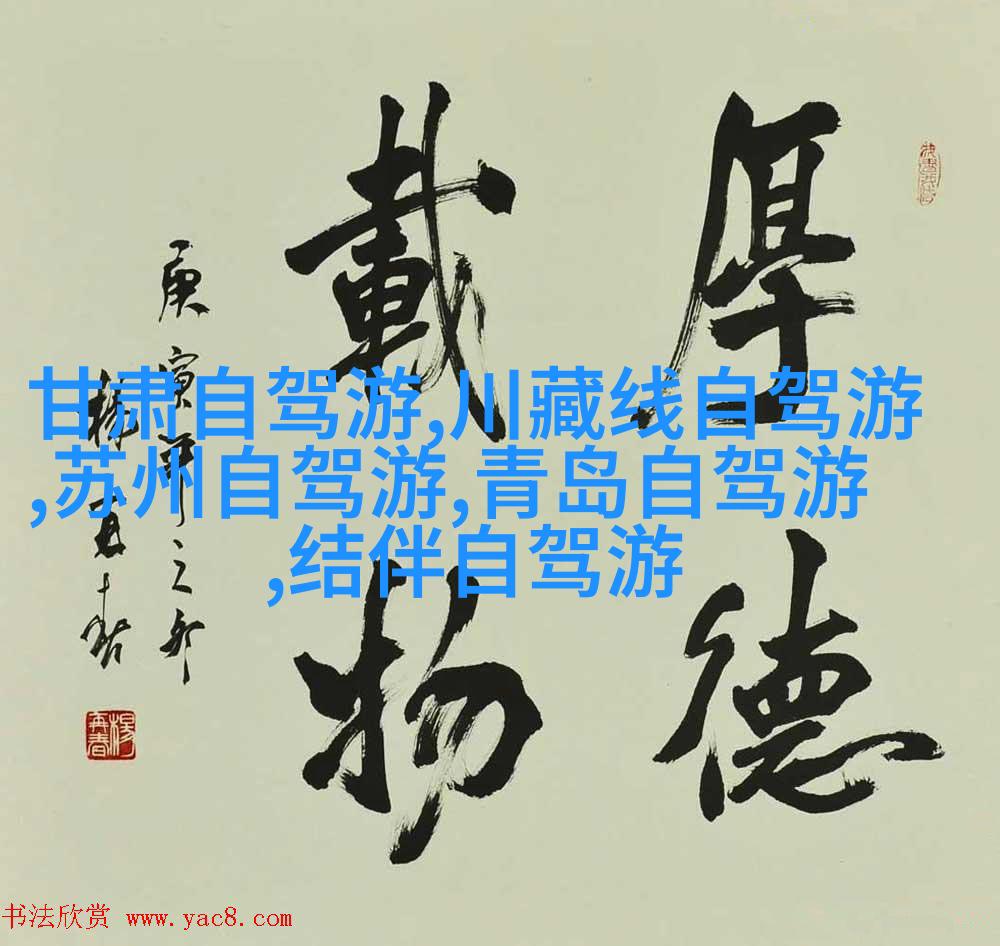 厚德
載物
庚寅年之郊
楊再春
楊再春
甘肃自驾游,川藏线自驾游
,苏州自驾游,青岛自驾游
,结伴自驾游
书法欣赏 www.yac8.com